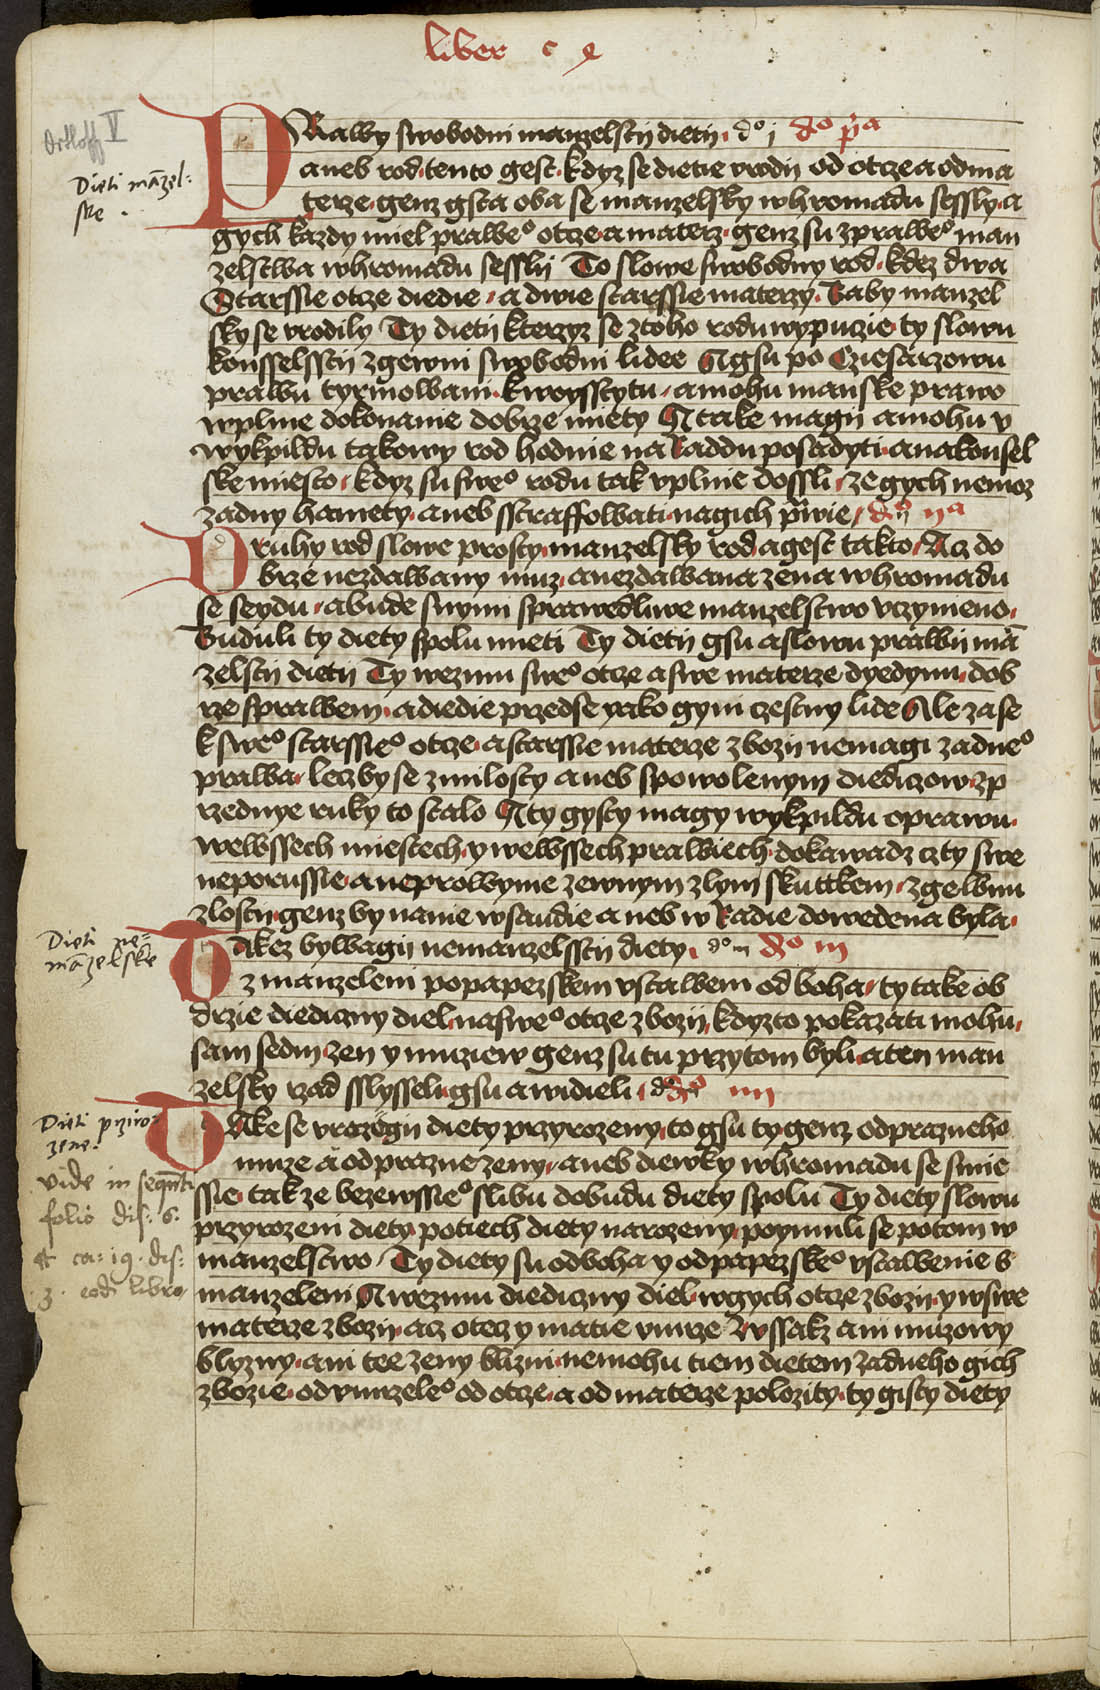 liber
Ortloff V
Dieti mãzel-
ske .
PRawy swobodni manzelsczij dietij . dᵒ j dᵒ pⁱa
aneb rod tento gest · kdyz se dietie vrodij od otcze a od ma
terze · genz gsta oba se manzelsky whromadu sessly · a
gych kazdy miel praweᵒ otcze · a materz · genz su zpraweᵒ man
zelstwa whromadu sesslij To slowe swobodny rod · kdez dwa
Starssie otcze diedie · a dwie starssie materzy · Baby manzel
sky se vrodily Ty dietij kterzyz se ztoho rodu wypuzie ty slowu
konsselsscij zgewni swobodni lidee A gsu po Cziesarzowu
prawu tyrmowani · kwoysstytu · a mohu manske prawo
wplnie dokonanie dobrze miety A take magij a mohu v
wykpildu takowy rod hodnie na Raddu posadyti · a na konsel
ske miesto · kdyz su sweᵒ rodu tak vplnie dossli · ze gych nemoz
zadny hamety · aneb sstraffowati · nagich pⁱwie / dᵒ ijᵃ
DRuhy rod slowe prosty · manzelsky rod a gest takto · Acz do
brze nezdawany muz · a nezdawana zena whromadu
se seydu · a bude s nymi sprawedliwe manzelstwo vczymeno ·
Buduli ty diety spolu mieti Ty dietij gsu a slowu prawij mã
zelscij dietij Ty wezmu sweᵒ otcze a swe materze dyedynu · dob
rze sprawem · a diedie przedse yako gyni czestny lide Ale zase
k sweᵒ starssieᵒ otcze · a starssie materze zbozij nemagi zadneᵒ
prawa · lecz by se z milosty aneb s powolenym diediczow · zp
rzednye ruky to stalo A ty gysty magy wykpildu oprawu ·
wewssech miestech · y wewssech prawiech · dokawadz czty swe
neporussie · a neprowynie zewnym zlym skuttkem · zgewnu
zlosty · genz by nanie w saudie aneb w Radie dowedena byla ·
Dieti ne-
mãzelske
TAkez bywagij nemanzelsscij diety · dᵒ iij dᵒ iij
z manzeleni po papezskem vstawem od boha · ty take ob
drzie diediczny diel · na sweᵒ otcze zbozij · kdyzto pokazati mohu ·
sam sedm · zen y muziew genz su tu przytom byli · a ten man
zelsky rzad sslysseli · gsu a widieli · dᵒ iiij
Dieti przíro-
zene.
TAke se vrozogij diety przyrozeny · to gsu ty genz od prazneho
muze a od prazne zeny · aneb diewky whromadu se smie
ssie · takze beze wssieᵒ slibu dobudu diety spolu Ty diety slowu
przyrozeni diety · potiech diety narozeny · poymuli se potom w
manzelstwo · Ty diety su od boha y od papezskeᵒ vstawenie s
manzeleni A wezmu diediczny diel · w gych otcze zbozij · y w swe
materze zbozij · acz otecz y matie vmrze A wssakz ani muzowy
blyzny · ani tee zeny blizni · nemohu tiem dietem zadneho gich
zbozie · od vmrzeleᵒ od otcze · a od materze polozity · ty gisty diety
vide in seqnti
folio dis: 6.
et ca: 19. dis:
3. eodē libro